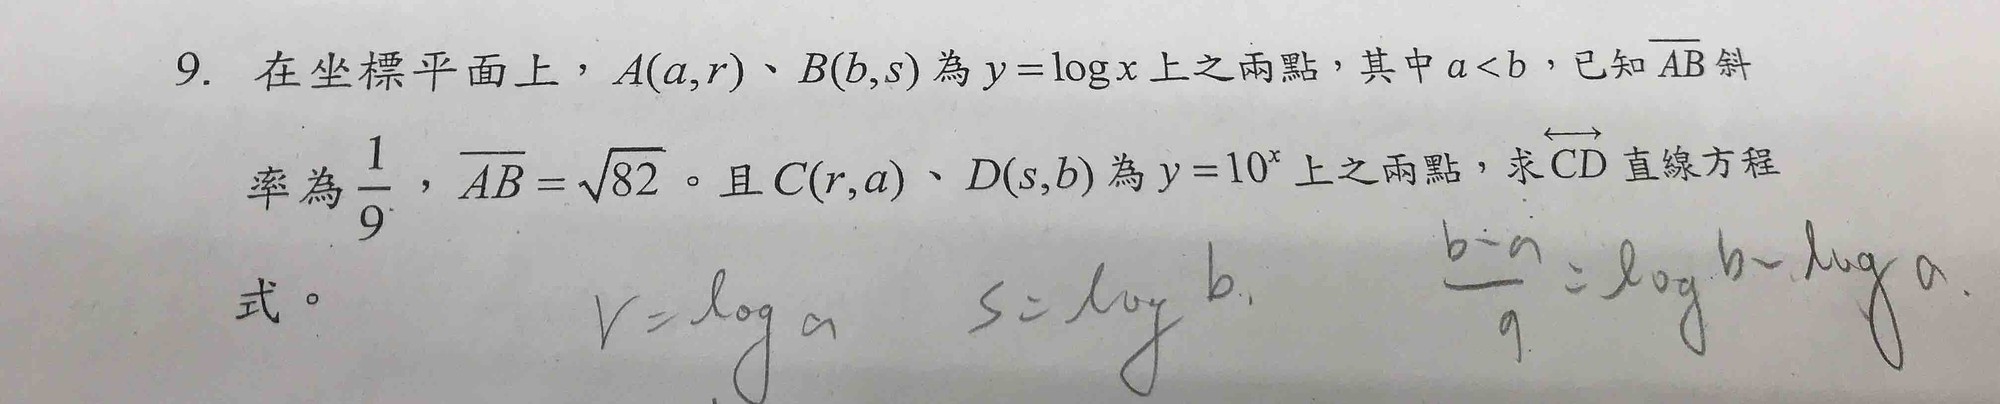 9. 在坐標平面上，A(a,r)、B(b,s)為 y=log x 上之兩點，其中 a<b，已知 \overline{AB} 斜
率為 \frac{1}{9}，\overline{AB}=\sqrt{82}。且 C(r,a)、D(s,b) 為 y=10^x 上之兩點，求 \overleftrightarrow{CD} 直線方程
式。
r=log a  s=log b.  \frac{b-a}{9}=log b-log a.